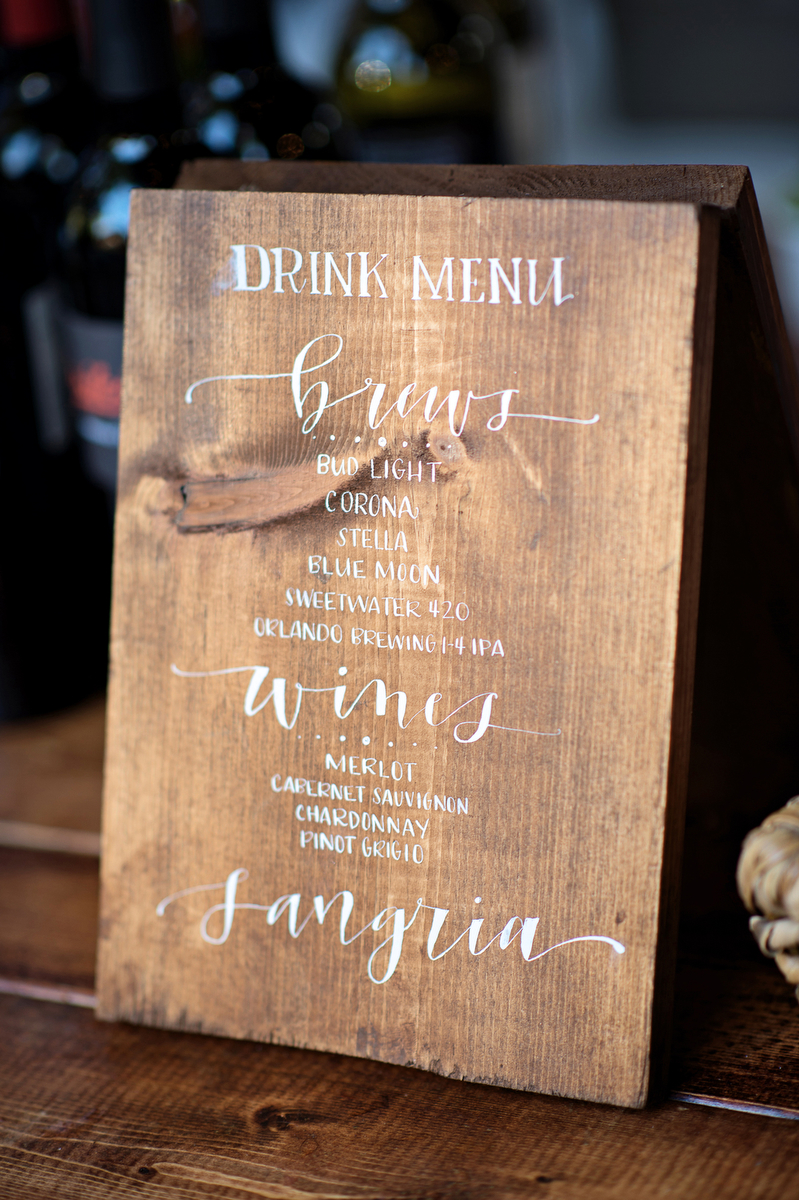 DRINK MENU
brews
BUD LIGHT
CORONA
STELLA
BLUE MOON
SWEETWATER 420
ORLANDO BREWING I-4 IPA
wines
MERLOT
CABERNET SAUVIGNON
CHARDONNAY
PINOT GRIGIO
sangria